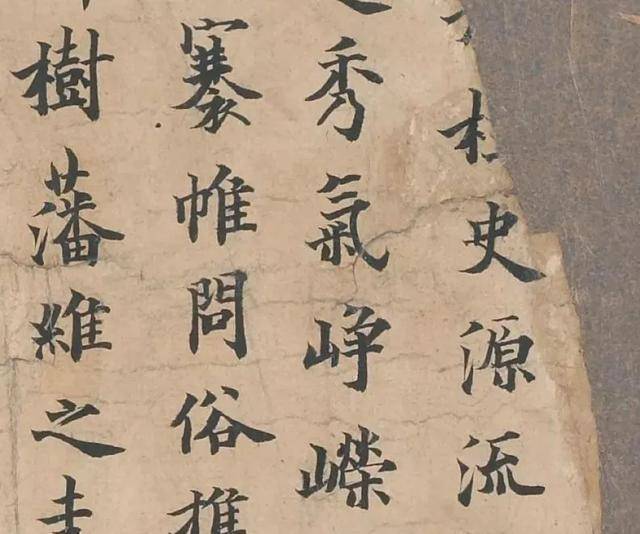 柱史源流
秀氣崢嶸
褰帷問俗
樹藩維之